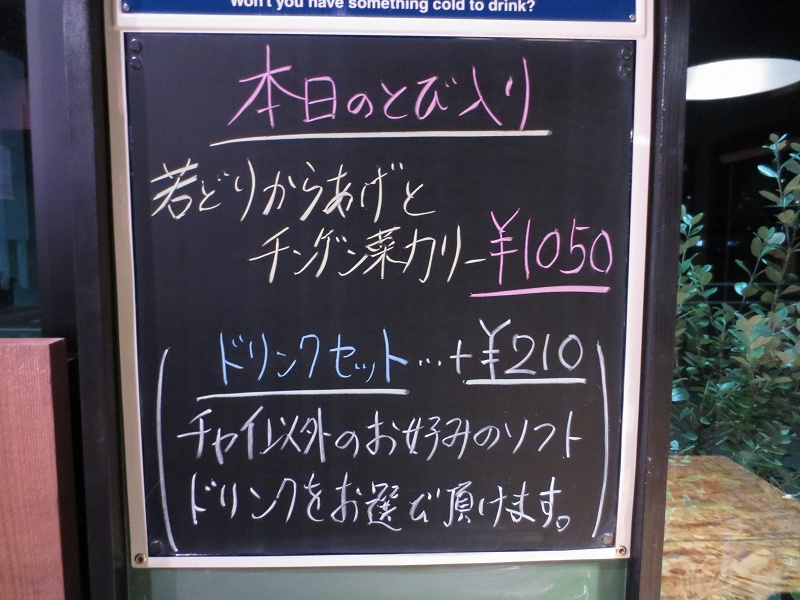 Won't you have something cold to drink?
本日のとび入り
若どりからあげと
チンゲン菜カリー ¥1050
ドリンクセット…+¥210
チャイ以外のお好みのソフト
ドリンクをお選び頂けます。